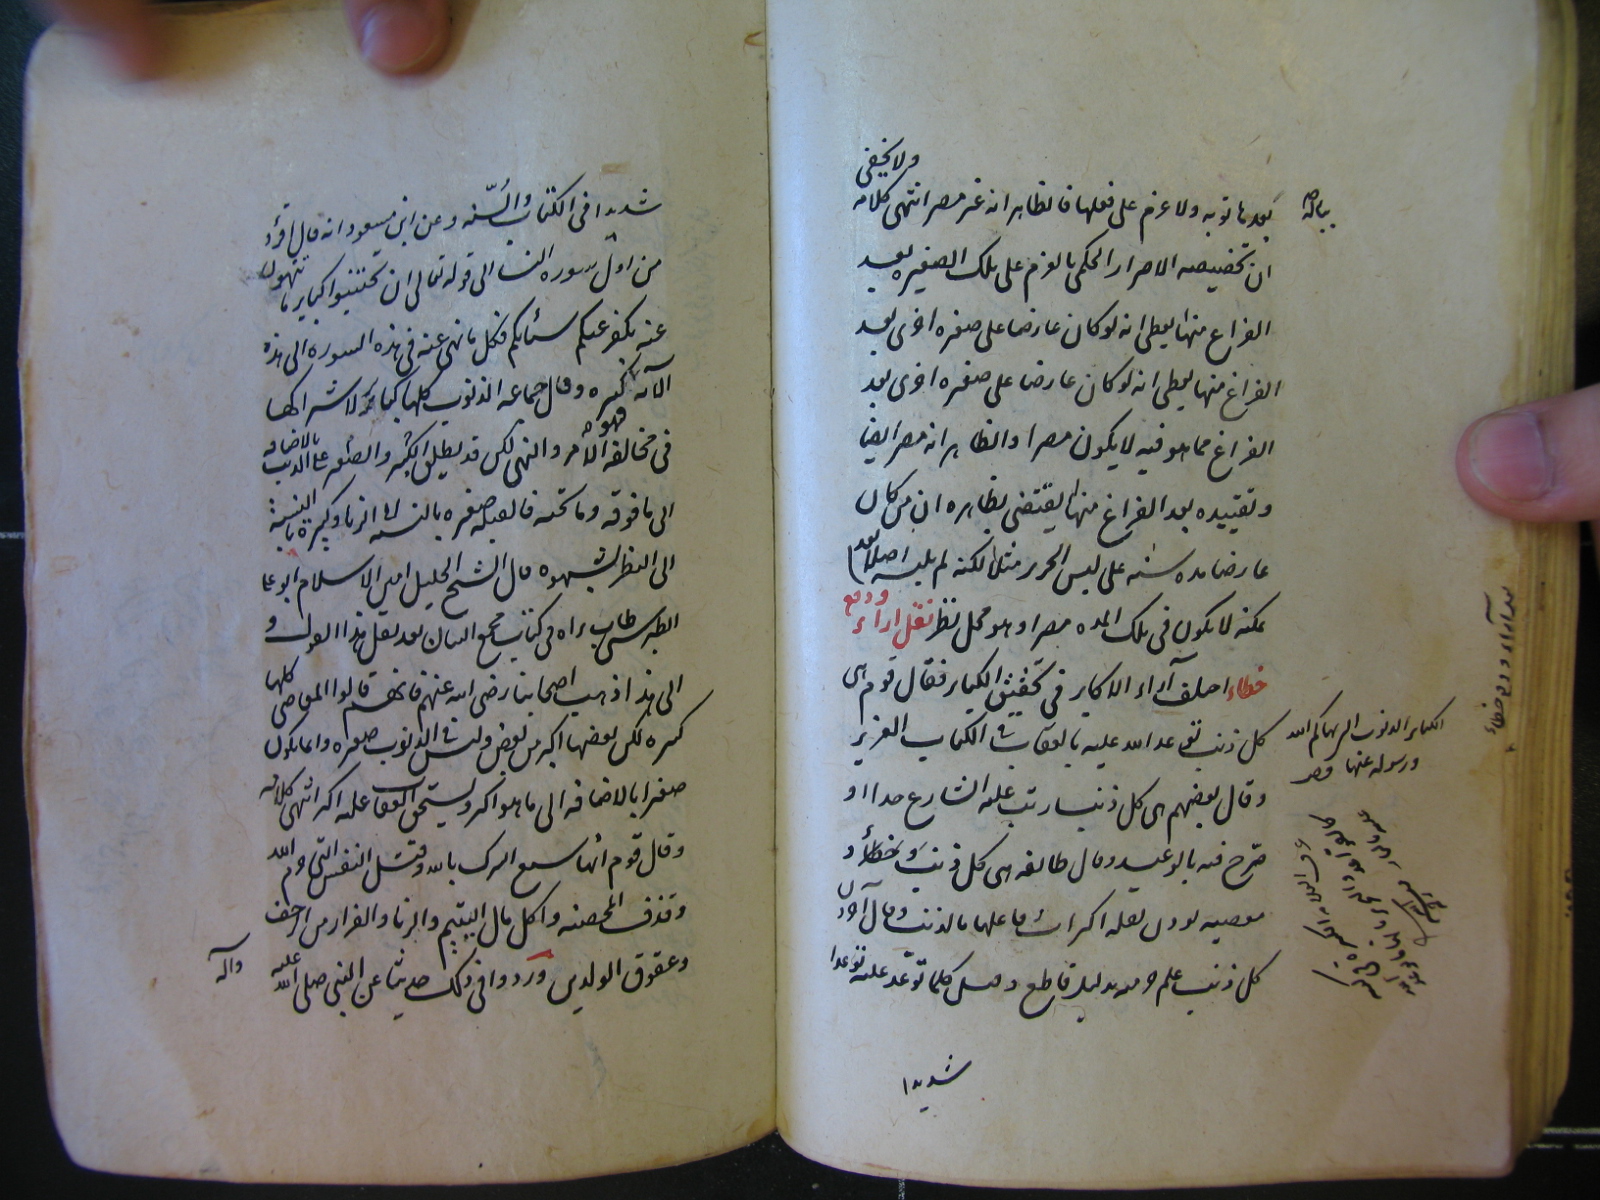 ولا يخفى
بعدها توبه ولا عزم على فعلها فالظاهر انه غير مصر انتهى كلامه
ان تخصيصه الاصرار الحكمي بالعزم على تلك الصغيره بعد
الفراغ منها يعطى انه لو كان عازما على صغيره اخرى بعد
الفراغ منها يعطى انه لو كان عازما على صغيره اخرى بعد
الفراغ مما هو فيه لا يكون مصرا والظاهر انه مصر ايضا
وتقييده ببعد الفراغ منها يقتضى بظاهره ان من كان
عازما مده سنه على لبس الحرير مثلا لكنه لم يلبسه اصلا لعدم
تمكنه لا يكون فى تلك المده مصرا وهو محل نظر نقل اراء ودفع
خطاء اختلف آراء الاكابر في تحقيق الكباير فقال قوم هى
كل ذنب توعد الله عليه بالعقاب فى الكتاب العزيز
وقال بعضهم هى كل ذنب رتب عليه الشارع حدا او
صرح فيه بالوعيد وقال طائفه هى كل ذنب و
معصيه تؤذن بقله اكتراث فاعلها بالدين وقال آخرون
كل ذنب علم حرمته بدليل قاطع وقيل كلما توعد عليه توعدا
شديدا
الكباير الذنوب التى نهاكم الله
ورسوله عنها
شديدا فى الكتاب والسنه وعن ابن مسعود انه قال اقرؤا
من اول سوره النسا الى قوله تعالى ان تجتنبوا كباير ما تنهون
عنه نكفر عنكم سيئاتكم فكل ما نهى عنه فى هذه السوره الى هذه
الآيه فهو كبيره وقال جماعه الذنوب كلها كباير لاشتراكها
فى مخالفه الامر والنهى لكن قد يطلق الكبير والصغير على الذنب بالاضافه
الى ما فوقه وما تحته فالقبله صغيره بالنسبه الى الزنا وكبيرة بالنسبة
الى النظر بشهوه قال الشيخ الجليل امين الاسلام ابو على
الطبرسى طاب ثراه فى كتاب مجمع البيان بعد نقل هذا القول و
الى هذا ذهب اصحابنا رضى الله عنهم فانهم قالوا المعاصى كلها
كبيره لكن بعضها اكبر من بعض وليس فى الذنوب صغيره وانما يكون
صغيرا بالاضافه الى ما هو اكبر ويستحق العقاب عليه اكثر انتهى كلامه
وقال قوم انها سبع الشرك بالله وقتل النفس التى حرم الله
وقذف المحصنه واكل مال اليتيم والزنا والفرار من الزحف
وعقوق الوالدين ورووا فى ذلك حديثا عن النبى صلى الله عليه
وآله